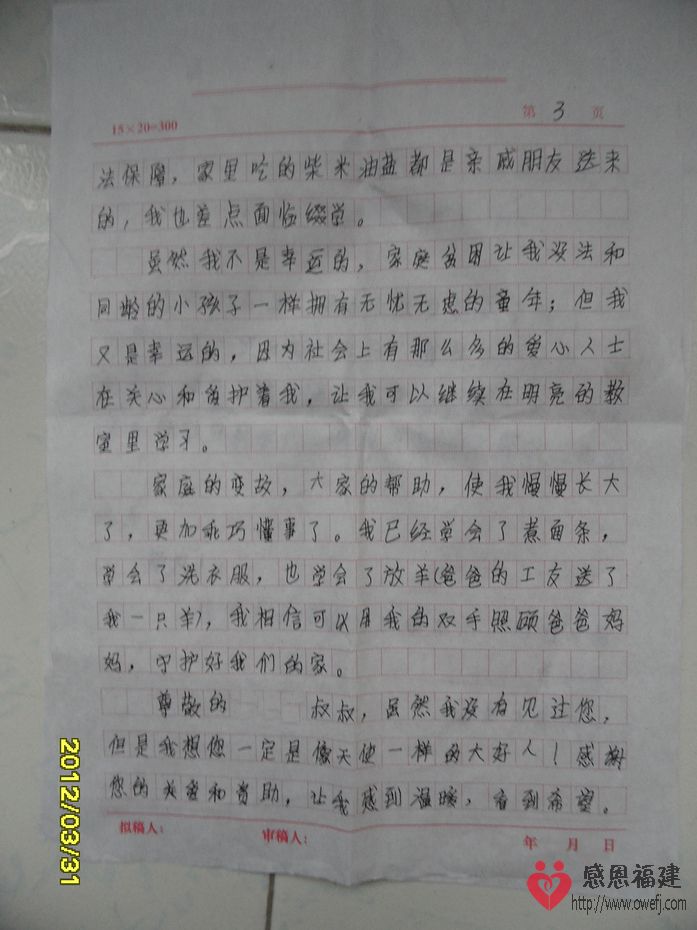 15×20=300 第 3 页
法保障，家里吃的柴米油盐都是亲戚朋友送来
的，我也差点面临缀学。
虽然我不是幸运的，家庭贫困让我没法和
同龄的小孩子一样拥有无忧无虑的童年；但我
又是幸运的，因为社会上有那么多的爱心人士
在关心和爱护着我，让我可以继续在明亮的教
室里学习。
家庭的变故，大家的帮助，使我慢慢长大
了，更加乖巧懂事了。我已经学会了煮面条，
学会了洗衣服，也学会了放羊(爸爸的工友送了
我一只羊)，我相信可以用我的双手照顾爸爸妈
妈，守护好我们的家。
尊敬的 叔叔，虽然我没有见过您，
但是我想您一定是像天使一样的大好人！感谢
您的关爱和资助，让我感到温暖，看到希望。
拟稿人： 审稿人： 年 月 日
2012/03/31
感恩福建
http://www.owefj.com